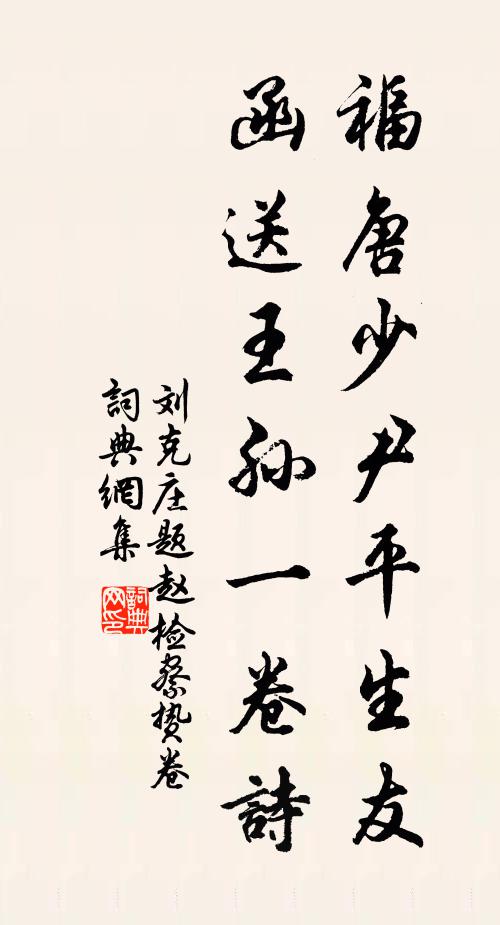 福唐少尹平生友
函送王孙一卷詩
刘克庄题赵检察贽卷
詞典網集
詞典
网印